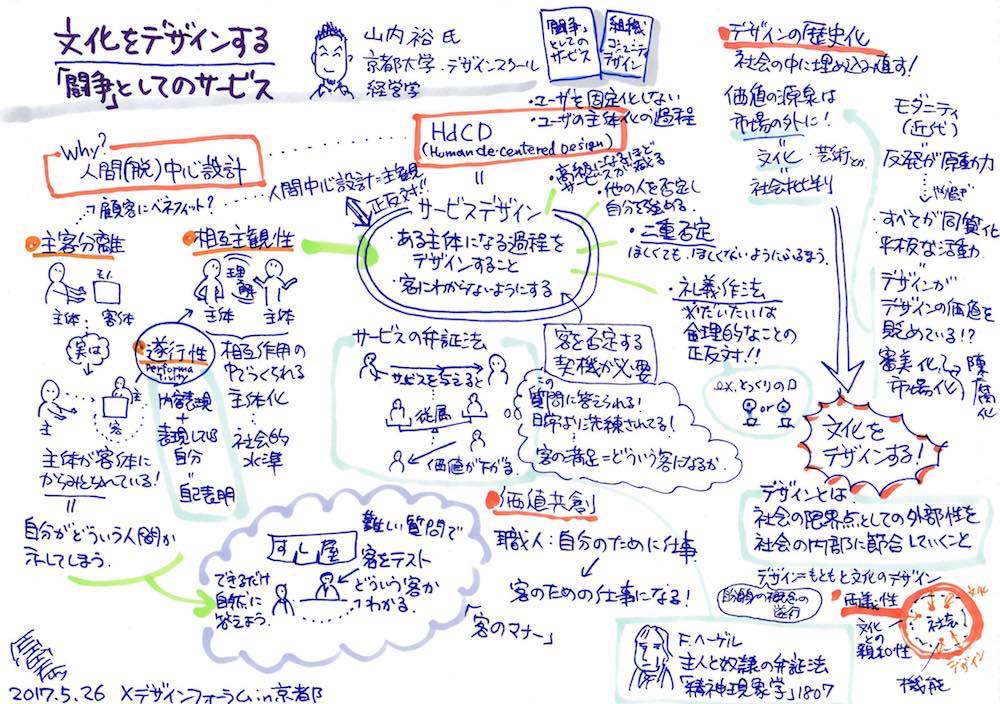 文化をデザインする
「闘争」としてのサービス
山内裕氏
京都大学・デザインスクール
経営学
「闘争」
としての
サービス
組織
コミュニティ
デザイン
Why?
人間(脱)中心設計
HdCD
(Human de-centered Design)
・ユーザを固定化しない
・ユーザの主体化の過程
人間中心設計=主観
正反対!!
顧客にベネフィット?
主客分離
モノ
主体:客体
実は
主
主
客
主体が客体に
からめとられている!
自分がどういう人間か
示してしまう。
相互主観性
理解
主体 主体
遂行性
Performa
tivity
内容表現
+
表現している
自分
自己表明
相互作用の
中でつくられる
主体化
社会的
水準
サービスデザイン
・ある主体になる過程を
デザインすること
・客にわからないようにする
・高級になるほど
サービスが減る
・他の人を否定し
自分を強める。
・二重否定
ほしくても、ほしくないようにふるまう。
・礼義作法
※だいたいは
倫理的なことの
正反対!!
ex. とっくりの口
or
サービスの弁証法
サービスを与えると
従属
価値が下がる。
客を否定する
契機が必要
この
質問に答えられる!
日常より洗練されてる!
客の満足=どういう客になるか
すし屋
難しい質問で
客をテスト
どういう客か
わかる
できるだけ
自然に
答えよう。
「客のマナー」
価値共創
職人:自分のために仕事
客のための仕事になる!
F.ヘーゲル
主人と奴隷の弁証法
「精神現象学」1807
デザインの歴史化
社会の中に埋め込み直す!
価値の源泉は
市場の外に!
文化・芸術とか
社会批判
モダニティ
(近代)
反発が原動力
・すべてが同質化
平板な活動
・デザインが
デザインの価値を
貶めている!?
審美化
市場化
陳腐化
文化を
デザインする!
デザインとは、
社会の限界点としての外部性を
社会の内部に節合していくこと
デザイン=もともと文化のデザイン
両義性
文化
との
親和性
社会
文化
デザイン
機能
2017.5.26 Xデザインフォーラムin京都